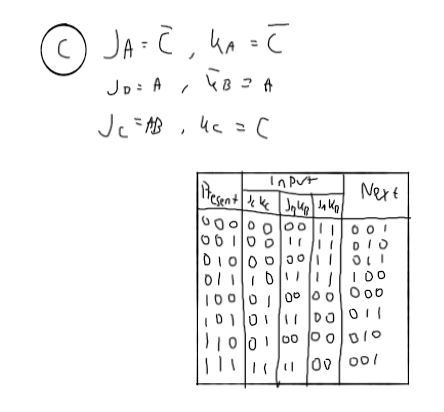 C J_A = C̅ , K_A = C̅
J_B = A , K_B = A
J_C = AB , K_C = C
Input
Present J_C K_C J_B K_B J_A K_A Next
000 00 00 11 001
001 00 11 11 010
010 00 00 11 011
011 10 11 11 100
100 01 00 00 000
101 01 11 00 011
110 01 00 00 010
111 11 11 00 001